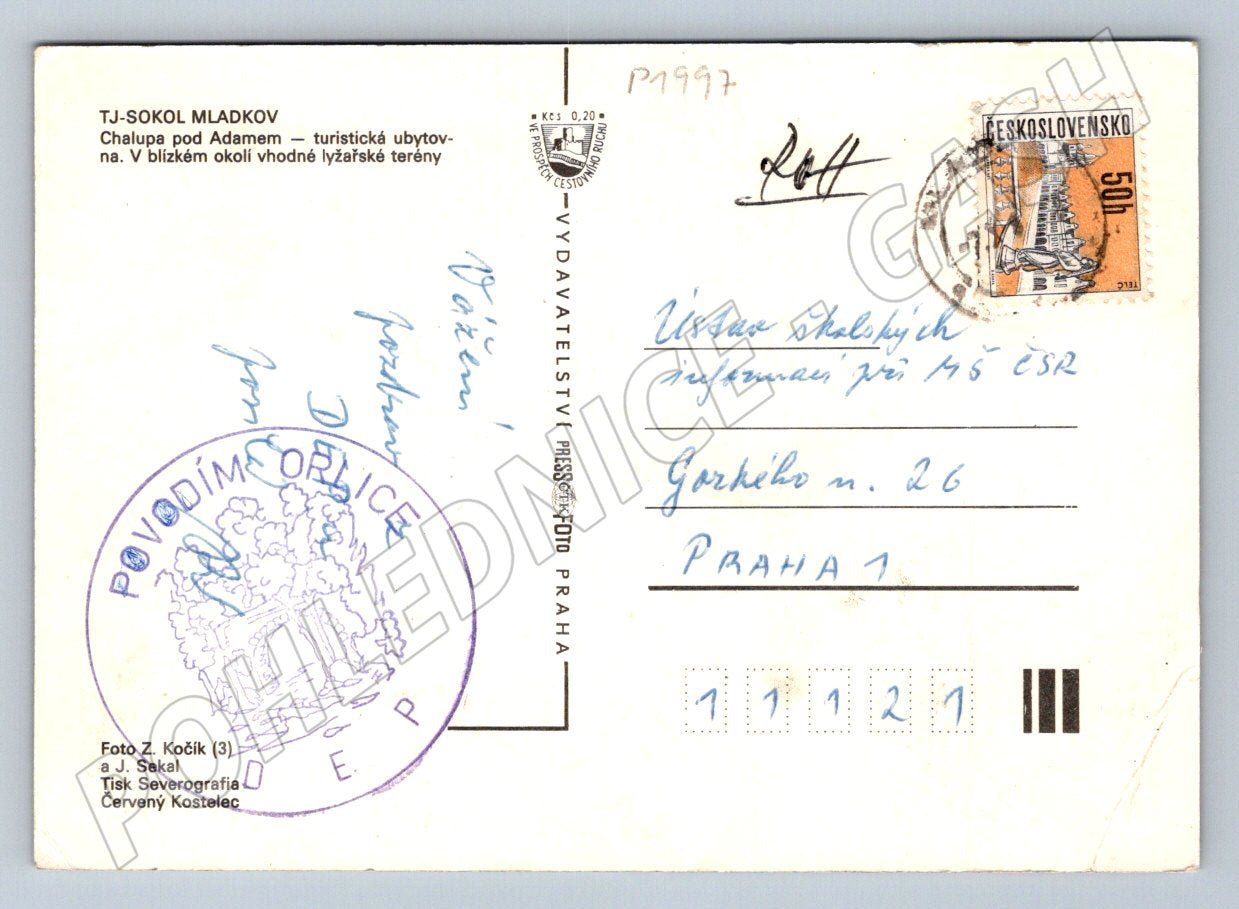 TJ-SOKOL MLADKOV
Chalupa pod Adamem — turistická ubytov-
na. V blízkém okolí vhodné lyžařské terény
Kčs 0,20
VE PROSPĚCH CESTOVNÍHO RUCHU
P1997
ČESKOSLOVENSKO
50h
TELČ
VYDAVATELSTVÍ PRESSFOTO PRAHA
ČTK
Vážení
pozdrav
Ústav školských
informací při MŠ ČSR
Gorkého n. 26
PRAHA 1
1 1 1 2 1
POVODÍM ORLICE
D E P
Foto Z. Kočík (3)
a J. Sekal
Tisk Severografia
Červený Kostelec
POHLEDNICE - GASH